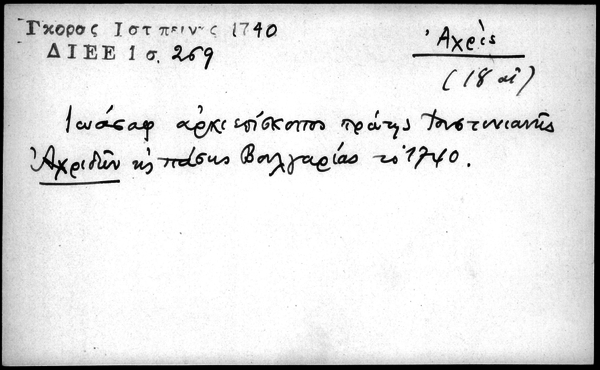 Γκορος Ιστπεινός 1740
ΔΙΕΕ 1 σ. 269
Ἀχρὶς
(18 αἰ)
Ἰωάσαφ ἀρχιεπίσκοπος πρώτης Ἰουστινιανῆς
Ἀχριδῶν κὶ πάσης Βουλγαρίας τὸ 1740.